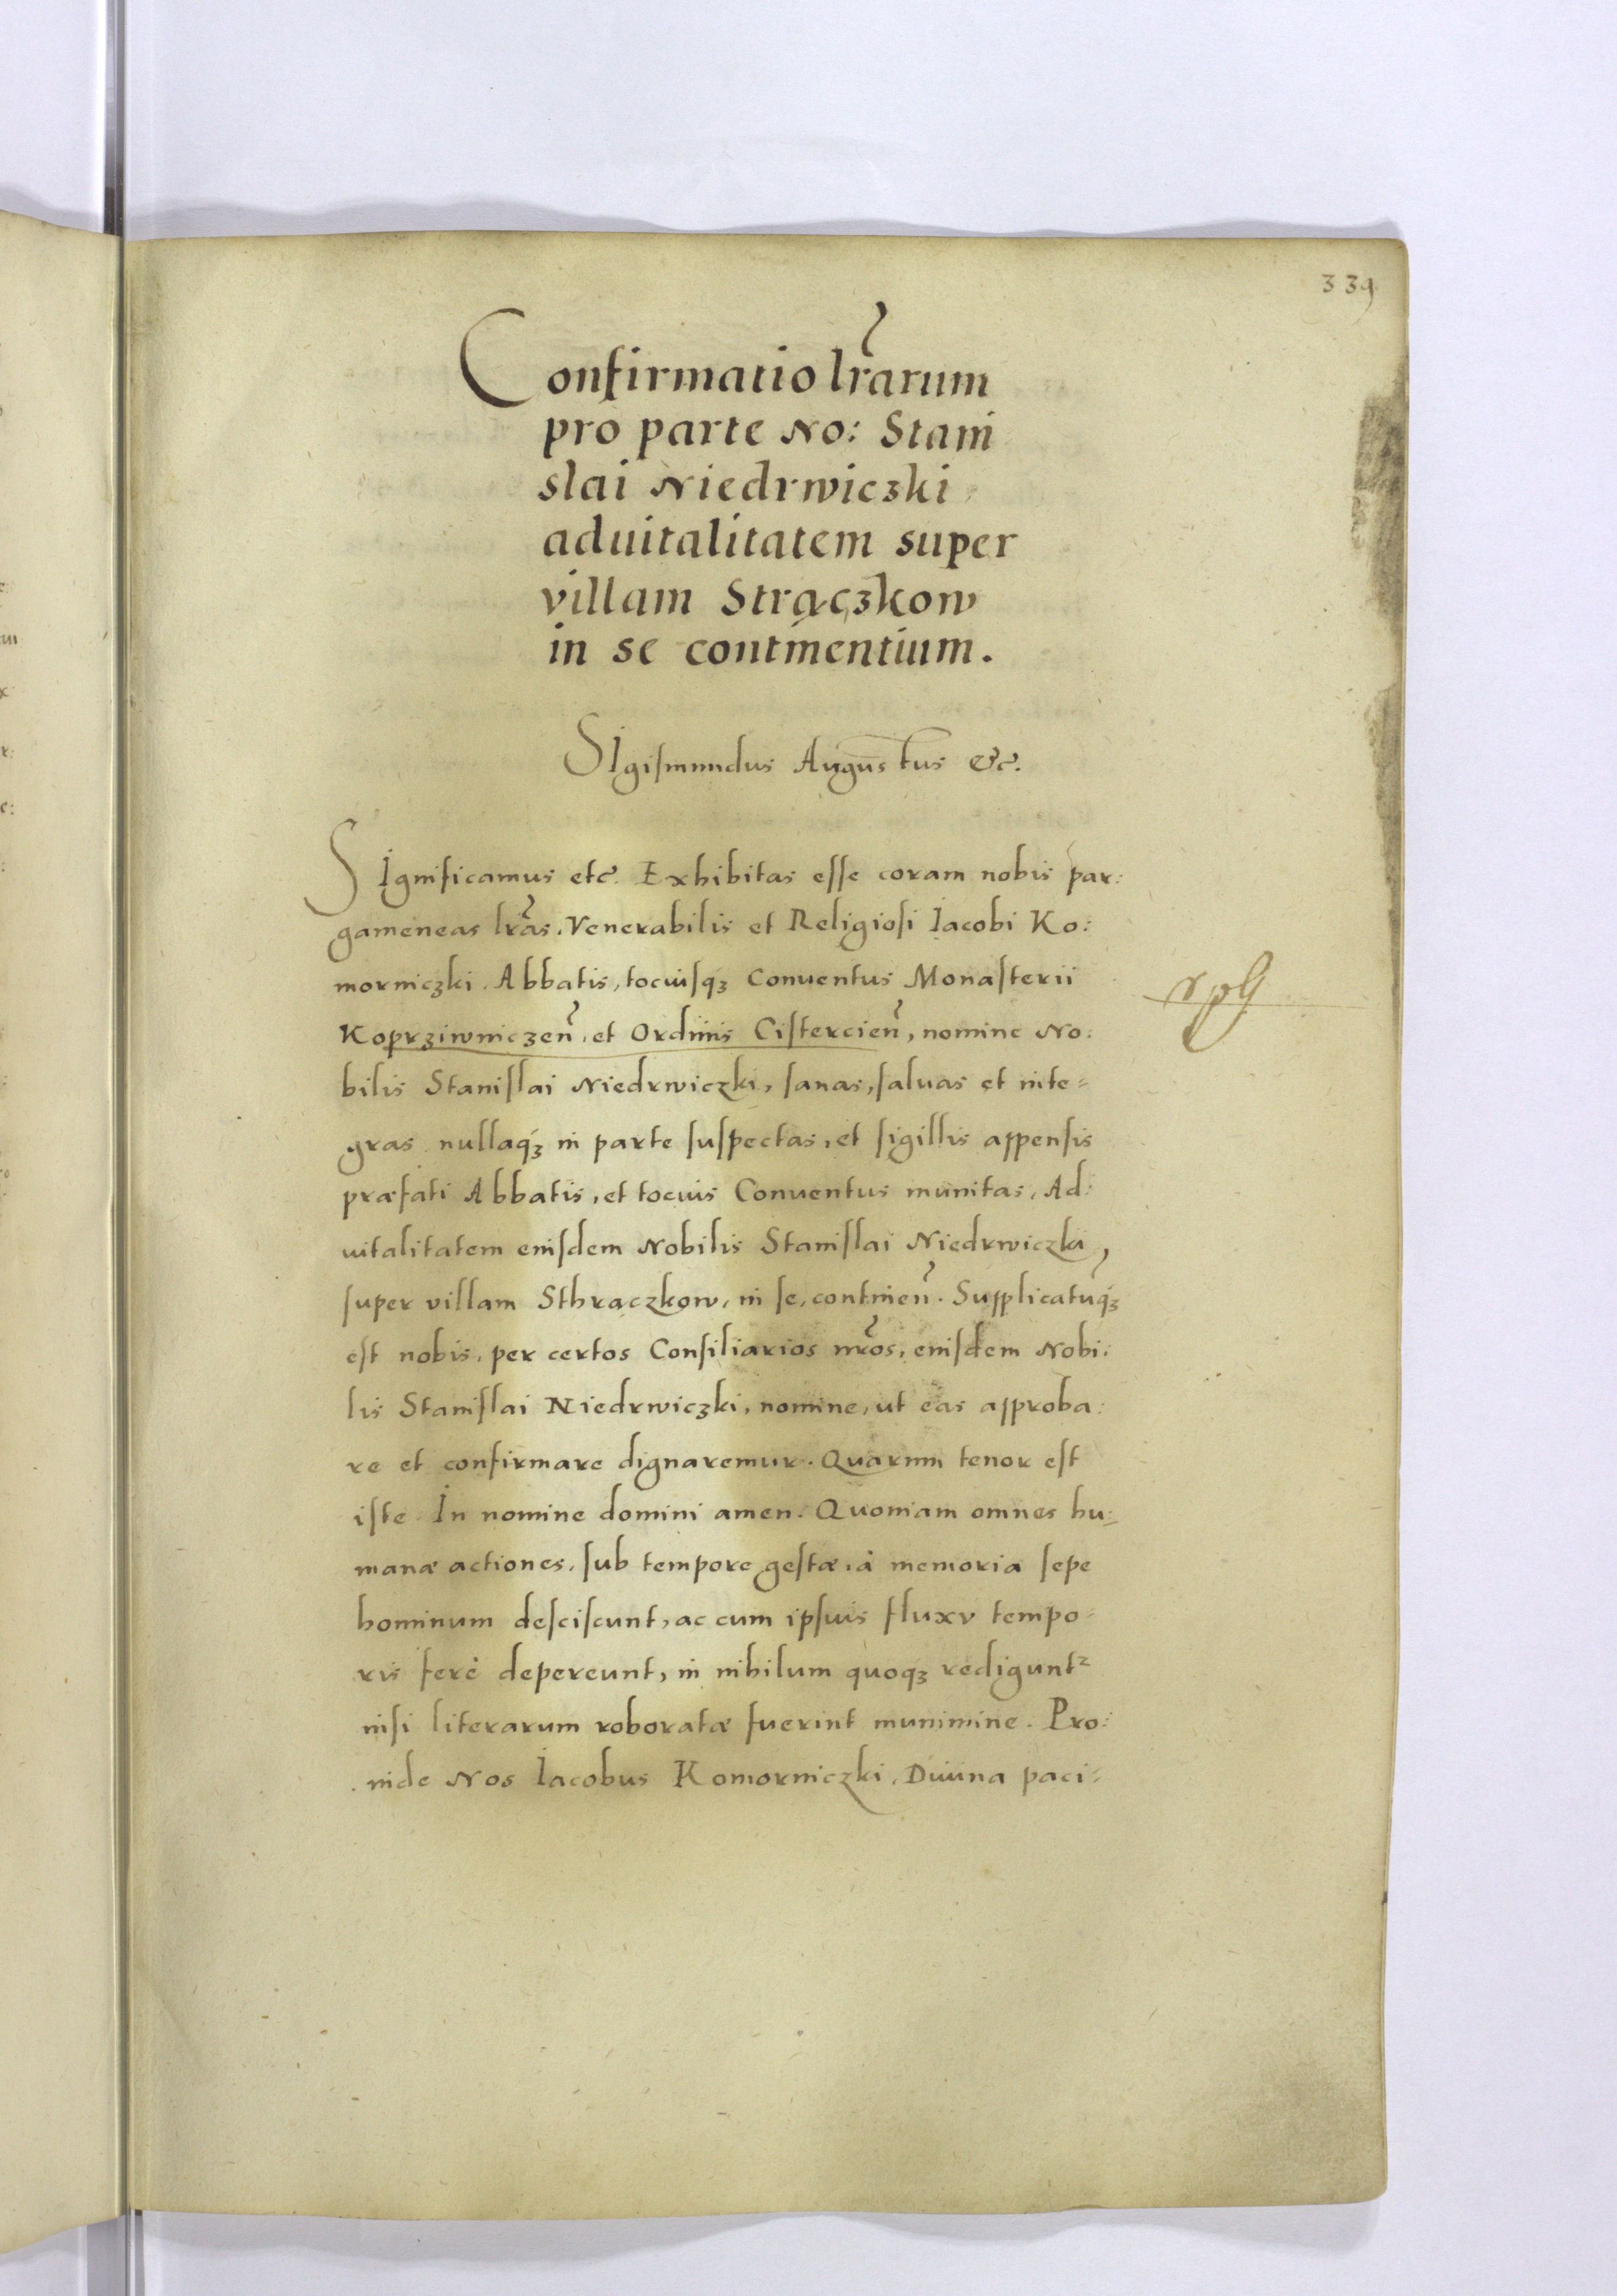 339
Confirmatio lr̃arum
pro parte No: Stani
slai Niedrwiczki
aduitalitatem super
villam Strączkow
in se continentium.
SIgismundus Augustus &c.
SIgnificamus etc. Exhibitas esse coram nobis par:
gameneas lr̃as. Venerabilis et Religiosi Iacobi Ko:
morniczki. Abbatis, tociusq3 Conuentus Monasterii
Koprziwniczen̄, et Ordinis Cistercien̄, nomine No:
bilis Stanislai Niedrwiczki, sanas, saluas et inte=
gras nullaq3 in parte suspectas, et sigillis appensis
præfati Abbatis, et tocius Conuentus munitas, Ad:
uitalitatem eiusdem Nobilis Stanislai Niedrwiczki,
super villam Sthrączkow, in se, continen̄. Supplicatuq3
est nobis, per certos Consiliarios nr̃os, eiusdem Nobi:
lis Stanislai Niedrwiczki, nomine, ut eas approba:
re et confirmare dignaremur. Quarum tenor est
iste. In nomine domini amen. Quoniam omnes hu:
manæ actiones, sub tempore gestæ, à memoria sepe
hominum desciscunt, ac cum ipsius fluxv tempo=
ris ferè depereunt, in nihilum quoq3 redigunt²
nisi literarum roboratæ fuerint munimine. Pro:
inde Nos Iacobus Komorniczki, Diuina paci=